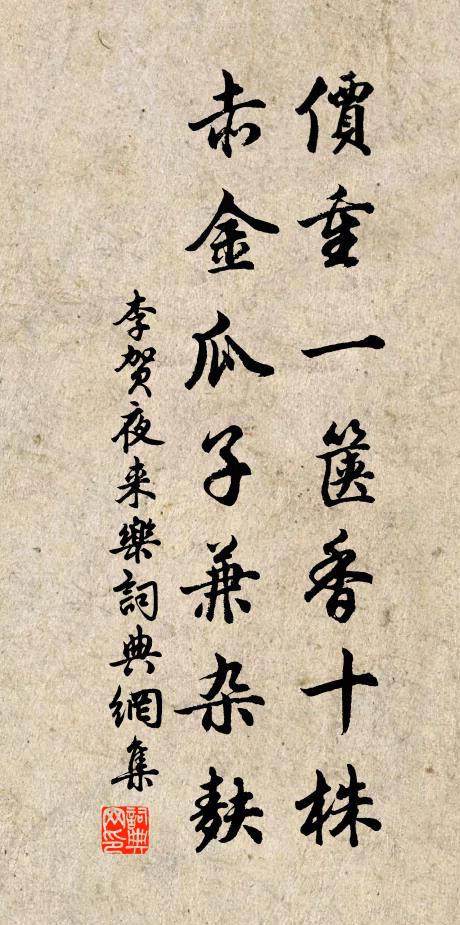 價重一篋香十株
赤金瓜子兼杂麸
李贺夜来樂詞典網集
詞典网印